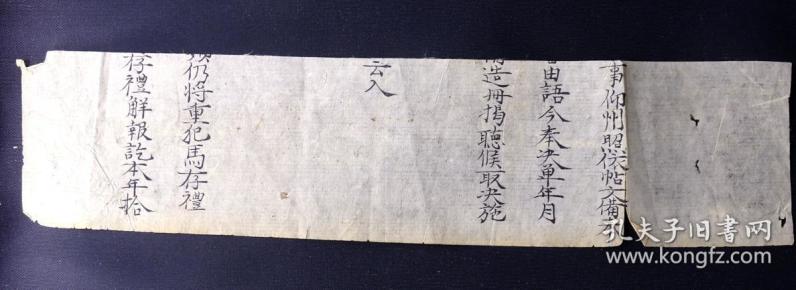 事仰州照依帖文備
由語今奉決單年月
造冊揭聽候取決施
云入
仍將重犯馬存禮
存禮解報訖本年拾
孔夫子旧书网
www.kongfz.com